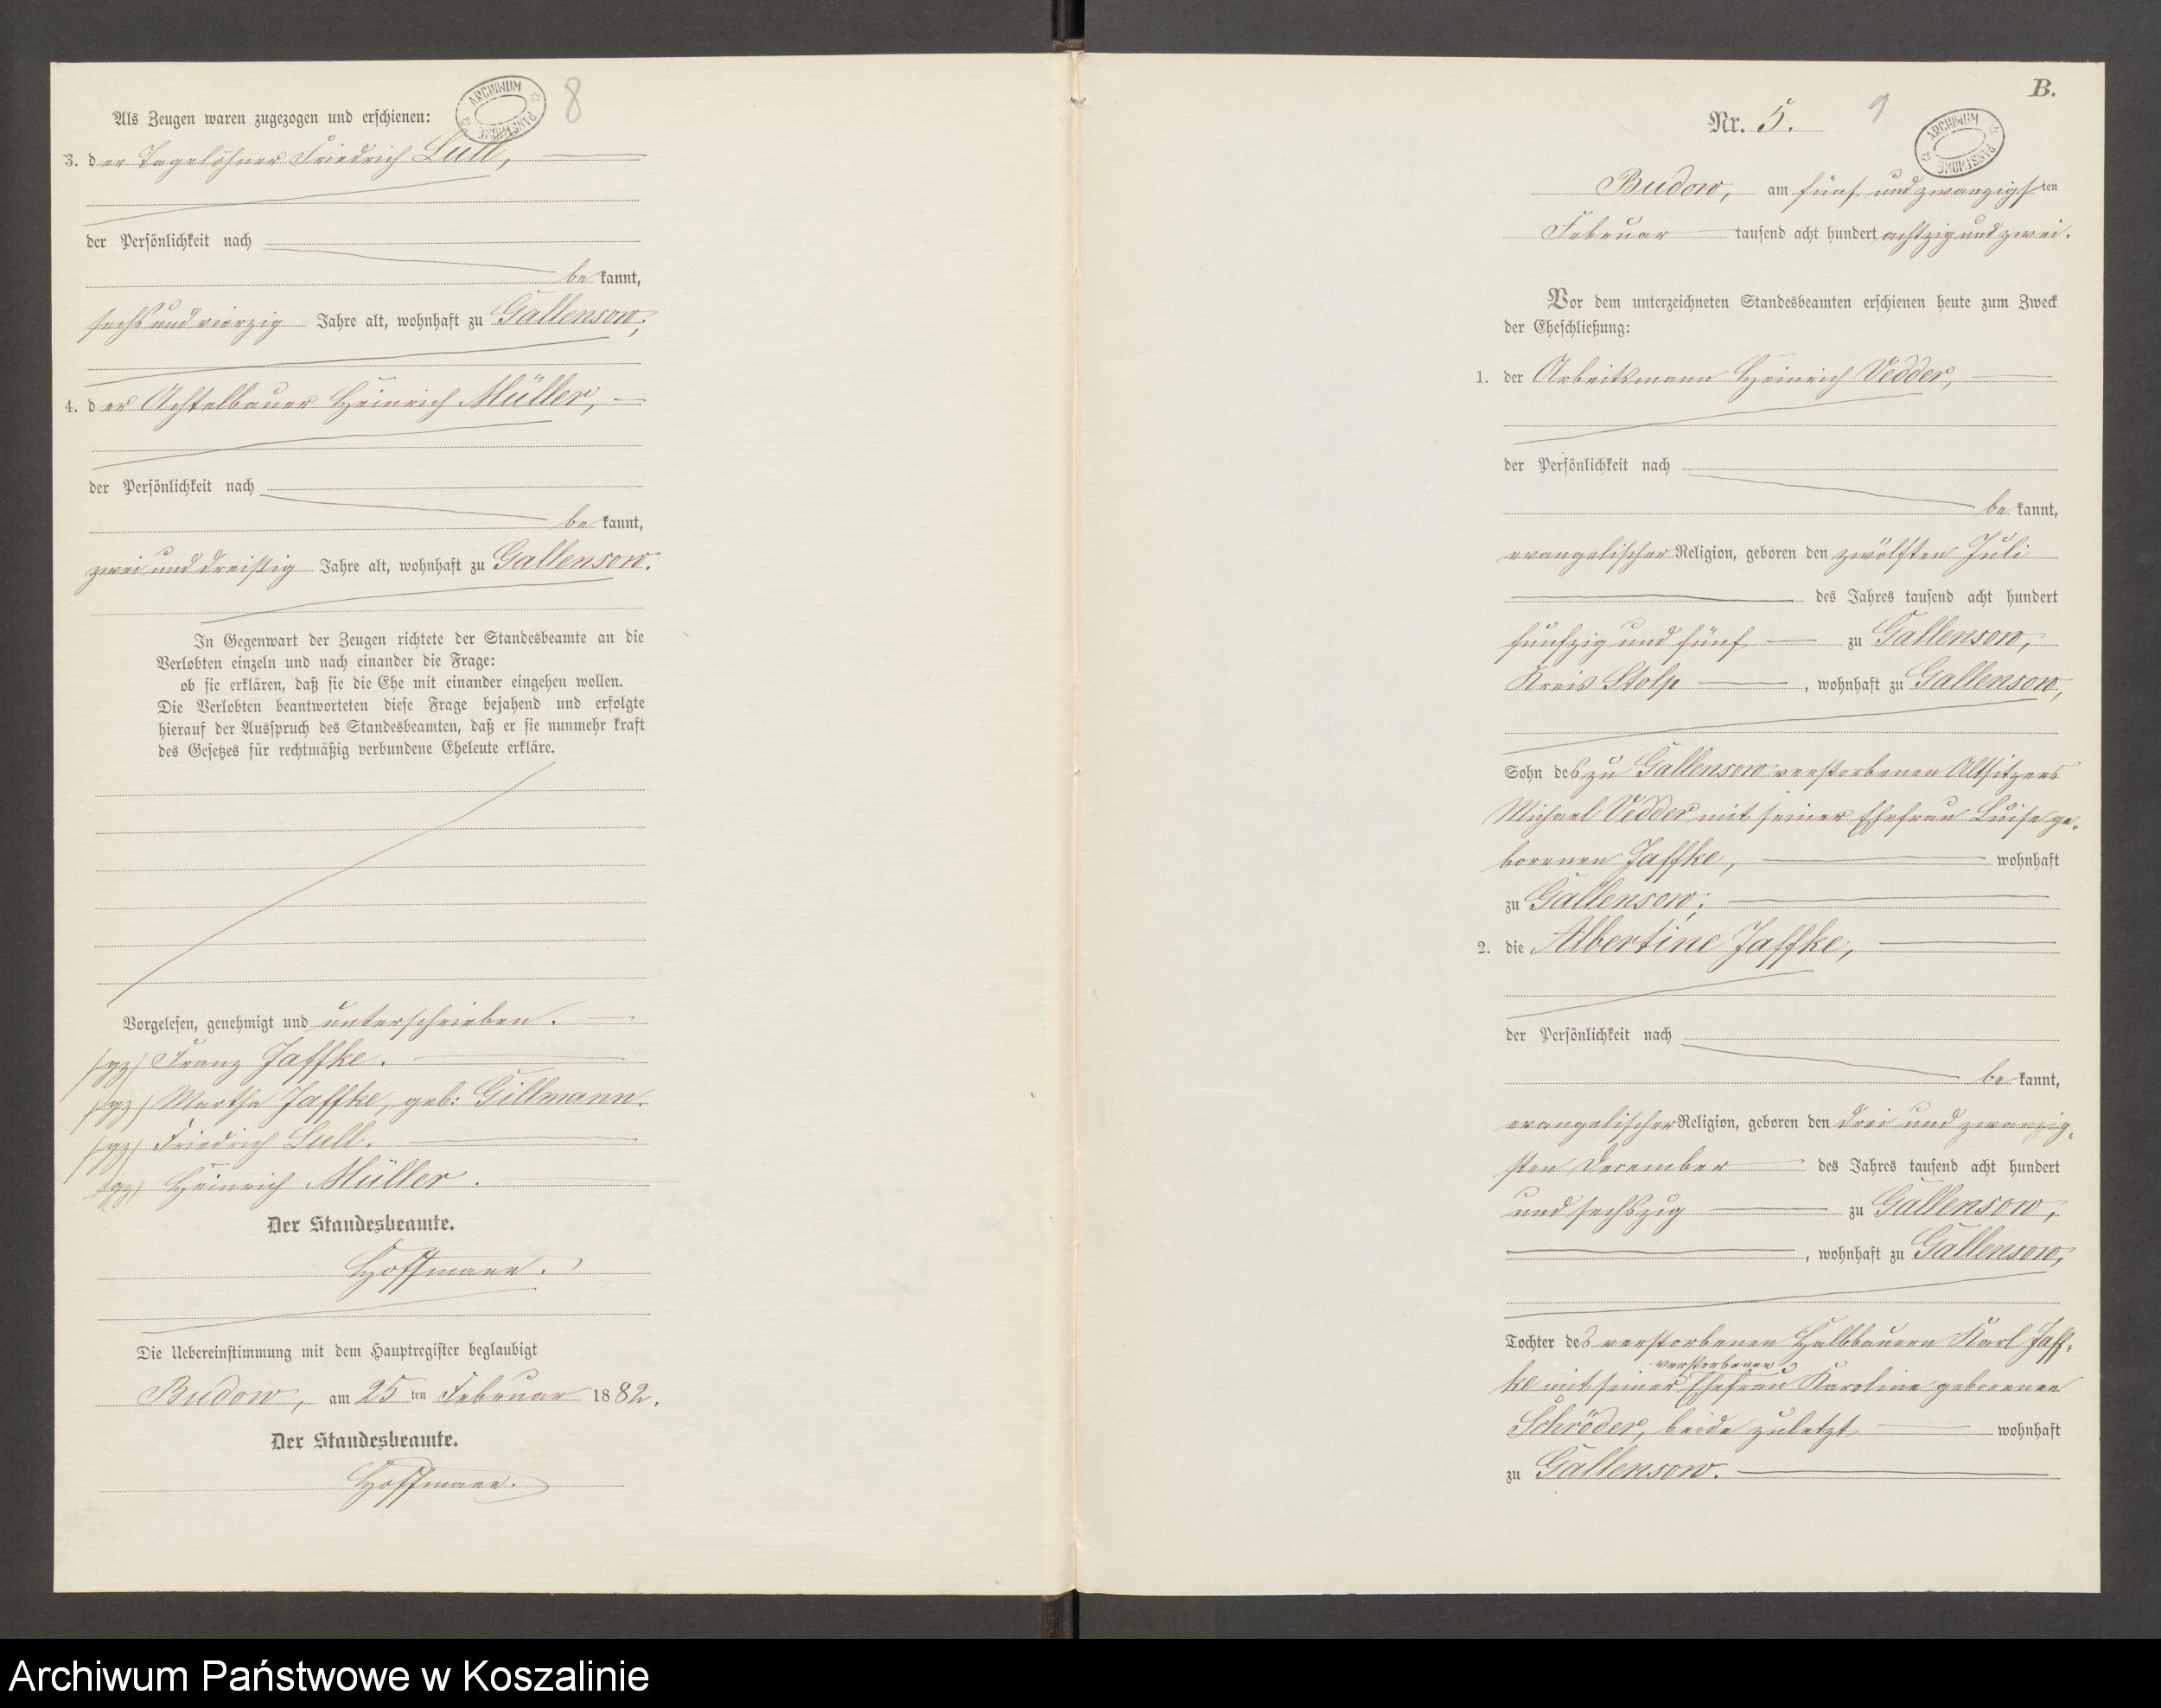 8
ARCHIWUM PAŃSTWOWE
Als Zeugen waren zugezogen und erschienen:
3. der Tagelöhner Friedrich Lull,
der Persönlichkeit nach
bekannt,
sechs und vierzig Jahre alt, wohnhaft zu Gallensow;
4. der Achtelbauer Heinrich Müller,
der Persönlichkeit nach
bekannt,
zwei und dreißig Jahre alt, wohnhaft zu Gallensow.
In Gegenwart der Zeugen richtete der Standesbeamte an die
Verlobten einzeln und nach einander die Frage:
ob sie erklären, daß sie die Ehe mit einander eingehen wollen.
Die Verlobten beantworteten diese Frage bejahend und erfolgte
hierauf der Ausspruch des Standesbeamten, daß er sie nunmehr kraft
des Gesetzes für rechtmäßig verbundene Eheleute erkläre.
Vorgelesen, genehmigt und unterschrieben.
(gz) Franz Jaffke.
(gz) Martha Jaffke, geb: Gillmann.
(gz) Friedrich Lull.
(gz) Heinrich Müller.
Der Standesbeamte.
Hoffmann.
Die Uebereinstimmung mit dem Hauptregister beglaubigt
Budow, am 25ten Februar 1882.
Der Standesbeamte.
Hoffmann.
B.
9
Nr. 5.
ARCHIWUM PAŃSTWOWE
Budow, am fünf und zwanzigsten
Februar tausend acht hundert achtzig und zwei.
Vor dem unterzeichneten Standesbeamten erschienen heute zum Zweck
der Eheschließung:
1. der Arbeitsmann Heinrich Vedder,
der Persönlichkeit nach
bekannt,
evangelischer Religion, geboren den zwölften Juli
des Jahres tausend acht hundert
funfzig und fünf zu Gallensow,
Kreis Stolp, wohnhaft zu Gallensow,
Sohn des zu Gallensow verstorbenen Altsitzers
Michael Vedder mit seiner Ehefrau Luise ge-
borenen Jaffke, wohnhaft
zu Gallensow;
2. die Albertine Jaffke,
der Persönlichkeit nach
bekannt,
evangelischer Religion, geboren den drei und zwanzig-
sten December des Jahres tausend acht hundert
und sechszig zu Gallensow,
, wohnhaft zu Gallensow,
Tochter des verstorbenen Halbbauern Karl Jaff-
verstorbenen
ke mit seiner Ehefrau Karoline geborenen
Schröder, beide zuletzt wohnhaft
zu Gallensow.
Archiwum Państwowe w Koszalinie